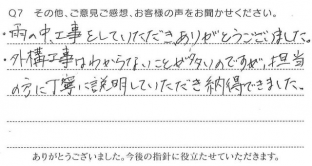 Q7 その他、ご意見ご感想、お客様の声をお聞かせください。
・雨の中工事をしていただきありがとうございました。
・外構工事はわからないことが多いのですが、担当
の方に丁寧に説明していただき納得できました。
ありがとうございました。今後の指針に役立たせていただきます。